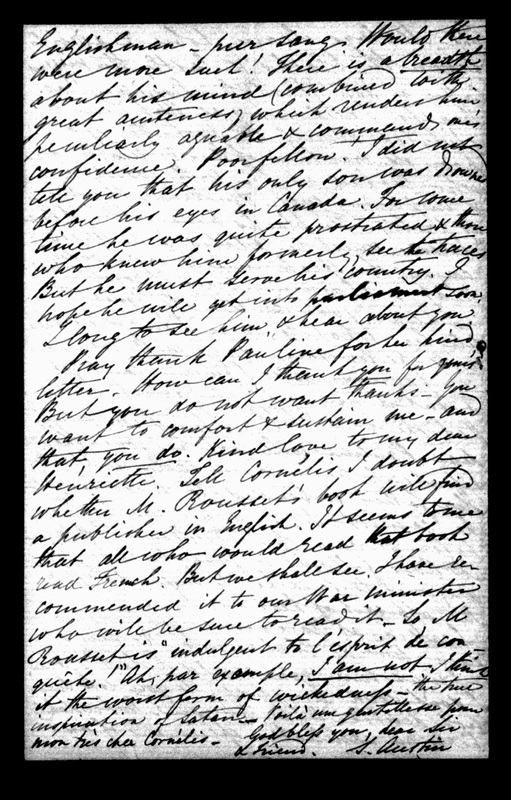 Englishman – pur sang. Would there
were more such! There is a breadth
about his mind (combined with
great austereness) which renders him
peculiarly agreable & commands one's
confidence. Poor fellow! I did not
tell you that his only son was drowned
before his eyes in Canada. For some
time he was quite prostrated & those
who knew him formerly, see the traces
But he must serve his country. I
hope he will get into parliament soon.
I long to see him, & hear about you.
Pray thank Pauline for her kind
letter. How can I thank you for yours?
But you do not want thanks – you
want to comfort & sustain me – and
that, you do. Kind love to my dear
Henriette. Tell Cornelis I doubt
whether M. Rousset's book will find
a publisher in English. It seems to me
that all who would read that book
read French. But we shall see. I have re-
commended it to our War minister
who will be sure to read it – So M
Rousset is "indulgent to l'esprit de con-
quête!" Ah, par exemple, I am not. I think
it the worst form of wickedness – the true
inspiration of Satan – Voilà une gentillesse pour
mon très cher Cornélis – God bless you, dear Sir
& friend. S. Austin